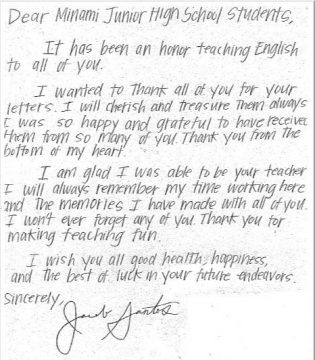 Dear Minami Junior High School Students,
It has been an honor teaching English
to all of you.
I wanted to thank all of you for your
letters. I will cherish and treasure them always
I was so happy and grateful to have receive
them from so many of you. Thank you from the
bottom of my heart.
I am glad I was able to be your teacher
I will always remember my time working here
and the memories I have made with all of you.
I won't ever forget any of you. Thank you for
making teaching fun.
I wish you all good health, happiness,
and the best of luck in your future endeavors.
Sincerely,
Jacob Santos